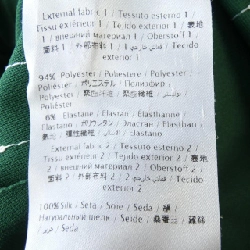 External fabric 1 / Tessuto esterno 1 /
Tissu extérieur 1 / Tejido exterior 1 / 表地
1 / внешний материал 1 / Oberstoff 1 /
面料 1 / 外部布料 1 / / Tecido
exterior 1
94% Polyester / Poliestere / Polyester /
Poliéster / ポリエステル / Полиэфир /
Polyester / 聚酯纤维 / 聚酯纖維 /
Poliéster
6% Elastane / Elastan / Elasthanne /
Elastano / ポリウレタン / Эластан /
Elastan / / Elastano
External fabric 2 / Tessuto esterno 2 /
Tissu extérieur 2 / Tejido exterior 2 / 表地
2 / внешний материал 2 / Oberstoff 2 /
面料 2 / 外部布料 2 / / Tecido
exterior 2
100% Silk / Seta / Soie / Seda / 絹 /
Натуральный шелк / Seide / 桑蚕丝 /
/ Seda